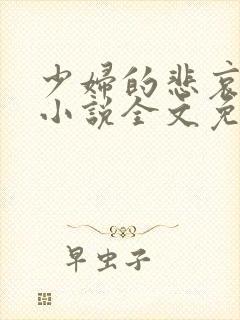 少婦的悲哀
小說全文免
早虫子